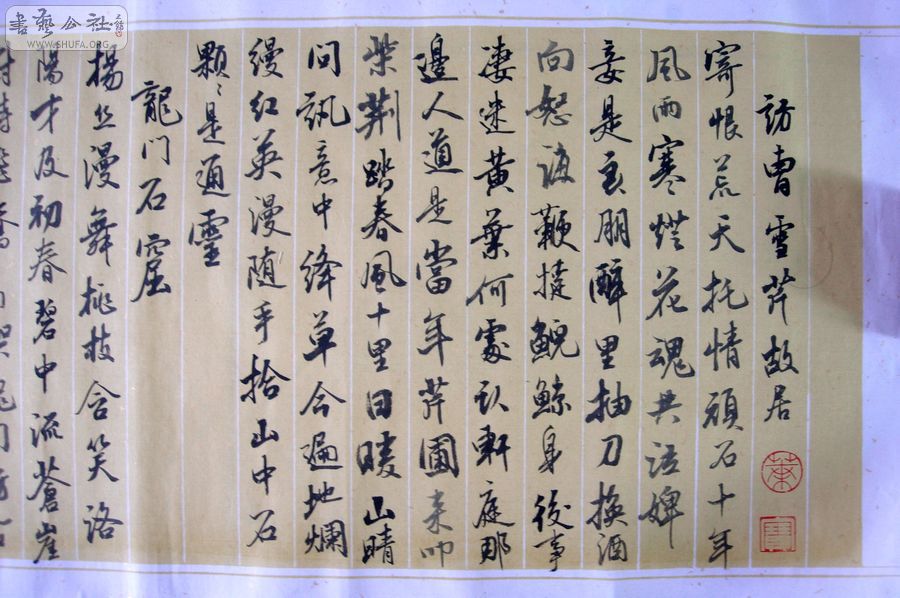 書藝公社
WWW.SHUFA.ORG
訪曹雪芹故居
寄恨荒天托情頑石十年
風雨寒燈花魂共語婢
妾是良朋醉里抽刀換酒
向怒海鞭撻鯢鯨身後事
淒迷黃葉何處臥軒庭那
邊人道是當年芹圃来叩
柴荆踏春風十里日暖山晴
問訊意中絳草今遍地爛
縵紅英漫随手拾山中石
顆〻是通靈
龍门石窟
楊丝漫舞桃枝含笑洛
陽才及初春碧中流蒼崖